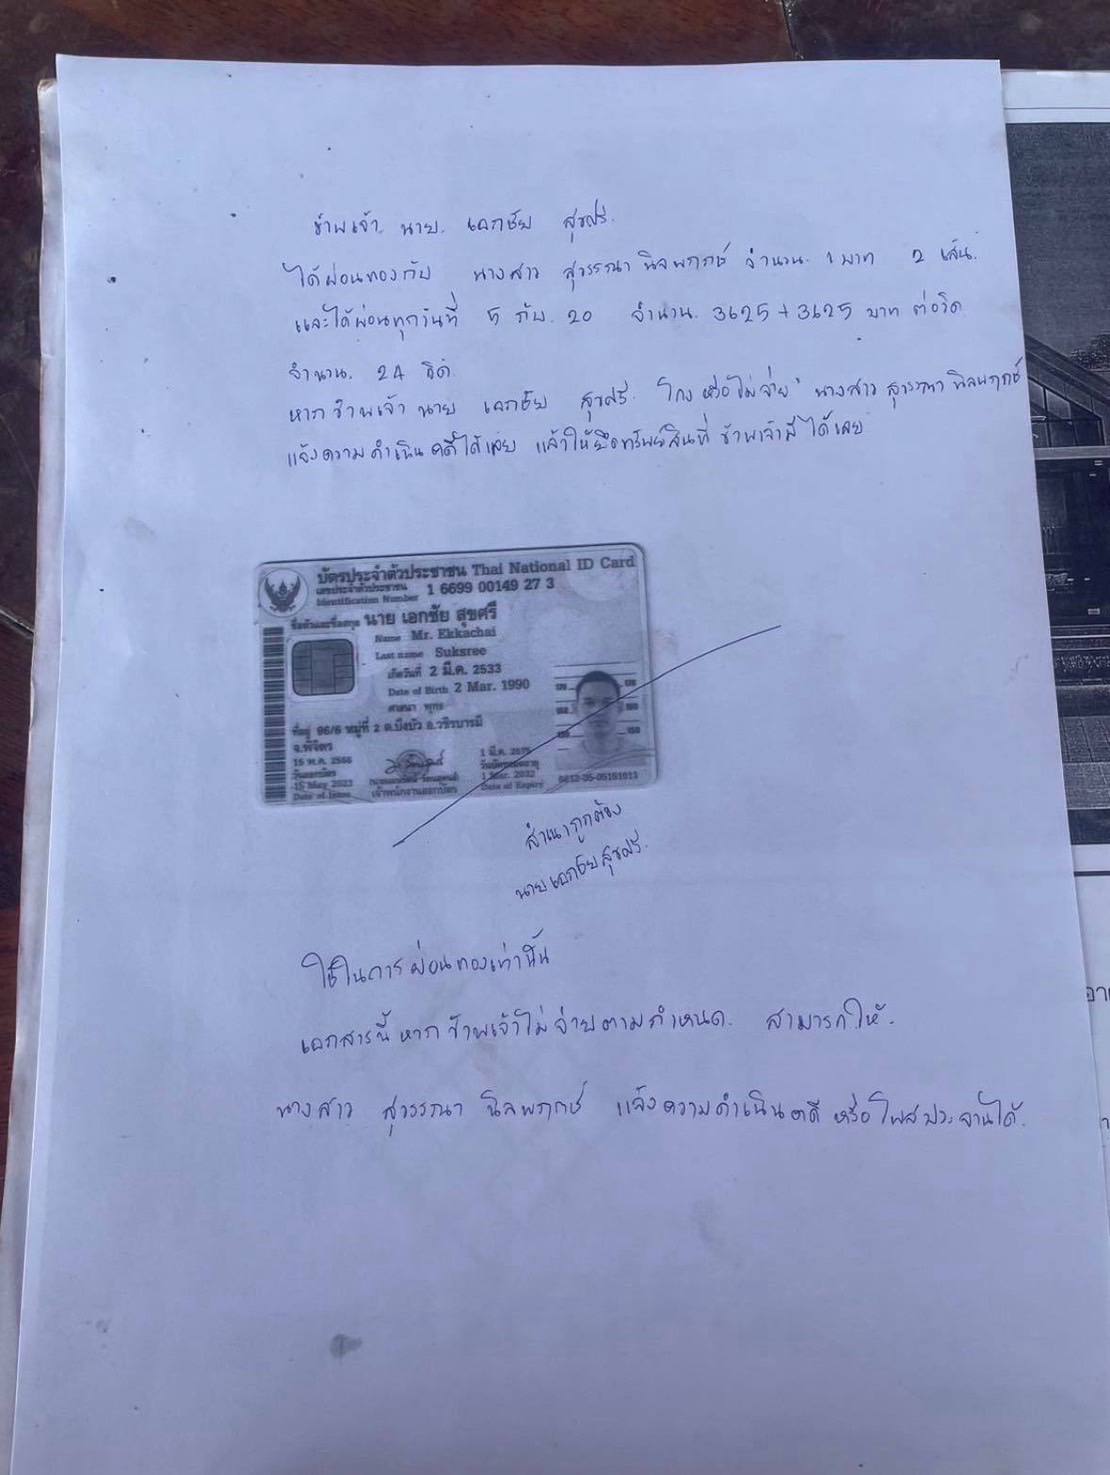 ข้าพเจ้า นาย เอกชัย สุขศรี.
ได้ผ่อนทองกับ นางสาว สุวรรณา นิลพฤกษ์ จำนวน 1 บาท 2 เส้น.
และได้ผ่อนทุกวันที่ 5 กับ 20 จำนวน 3625 + 3625 บาท ต่องวด
จำนวน 24 งวด
หาก ข้าพเจ้า นาย เอกชัย สุขศรี. โกง หรือไม่จ่าย นางสาว สุวรรณา นิลพฤกษ์
แจ้งความดำเนินคดีได้เลย แล้วให้ยึดทรัพย์สินที่ ข้าพเจ้ามี ได้เลย
บัตรประจำตัวประชาชน Thai National ID Card
เลขประจำตัวประชาชน 1 6699 00149 27 3
Identification Number
ชื่อตัวและชื่อสกุล นาย เอกชัย สุขศรี
Name Mr. Ekkachai
Last name Suksree
เกิดวันที่ 2 มี.ค. 2533
Date of Birth 2 Mar. 1990
ศาสนา พุทธ
ที่อยู่ 96/6 หมู่ที่ 2 ต.บึงบัว อ.วชิรบารมี
จ.พิจิตร
15 พ.ค. 2566
วันออกบัตร
15 May 2023
Date of Issue
เจ้าพนักงานออกบัตร
1 มี.ค. 2575
วันบัตรหมดอายุ
1 Mar. 2032
Date of Expiry
สำเนาถูกต้อง
นาย เอกชัย สุขศรี.
ใช้ในการผ่อนทองเท่านั้น
เอกสารนี้ หาก ข้าพเจ้าไม่จ่ายตามกำหนด. สามารถให้.
นางสาว สุวรรณา นิลพฤกษ์ แจ้งความดำเนินคดี หรือโพสประจานได้.